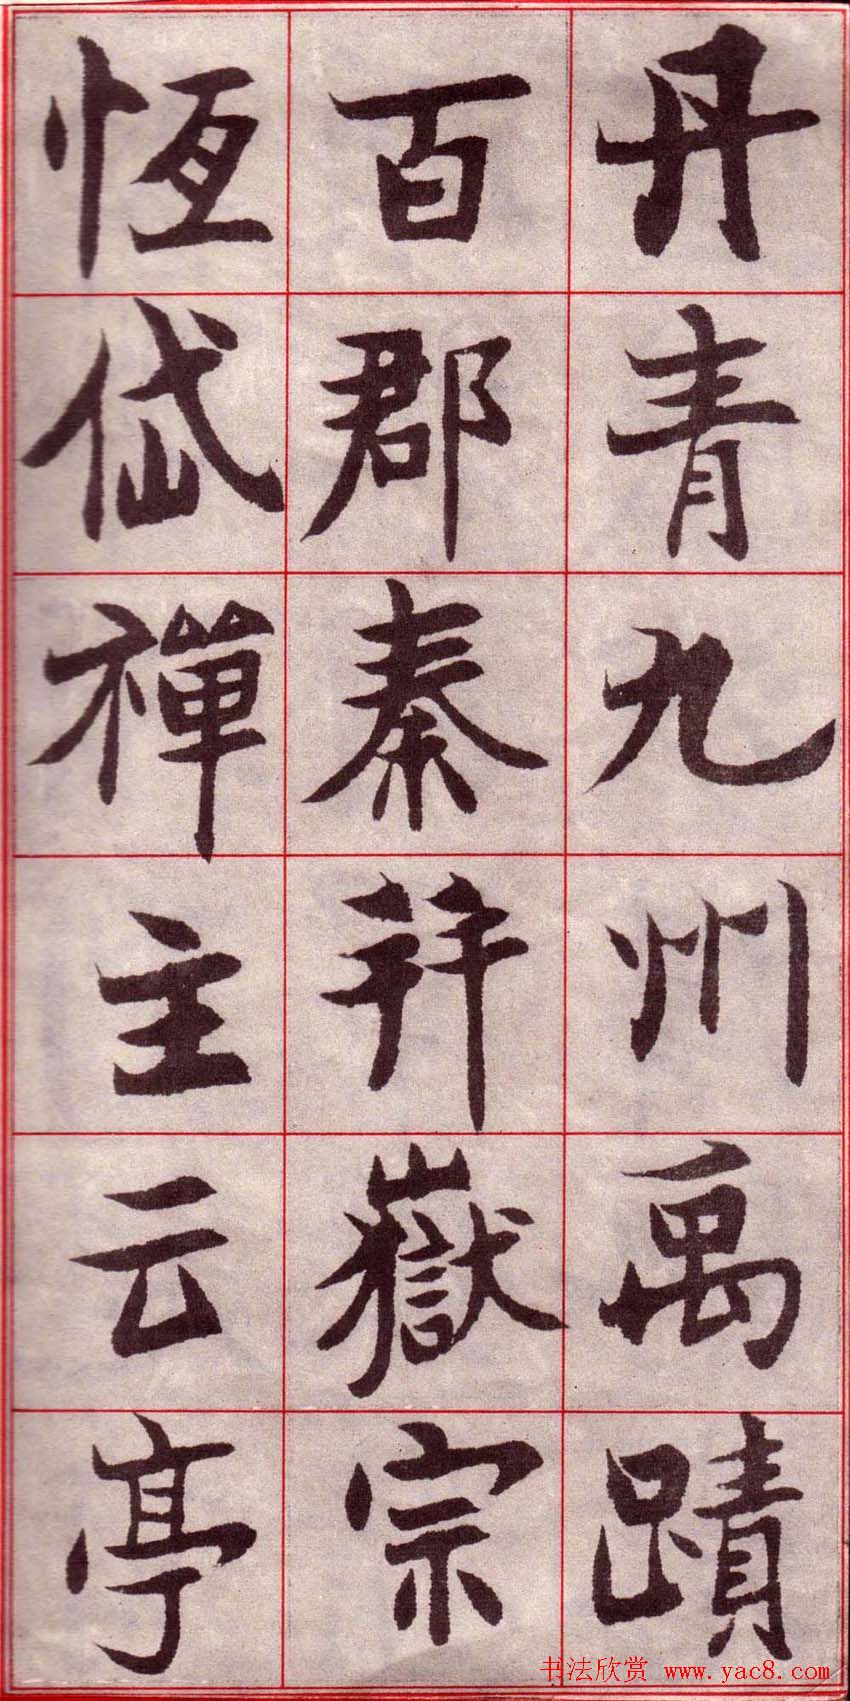 丹青九州禹蹟
百郡秦并嶽宗
恆岱禪主云亭
书法欣赏 www.yac8.com